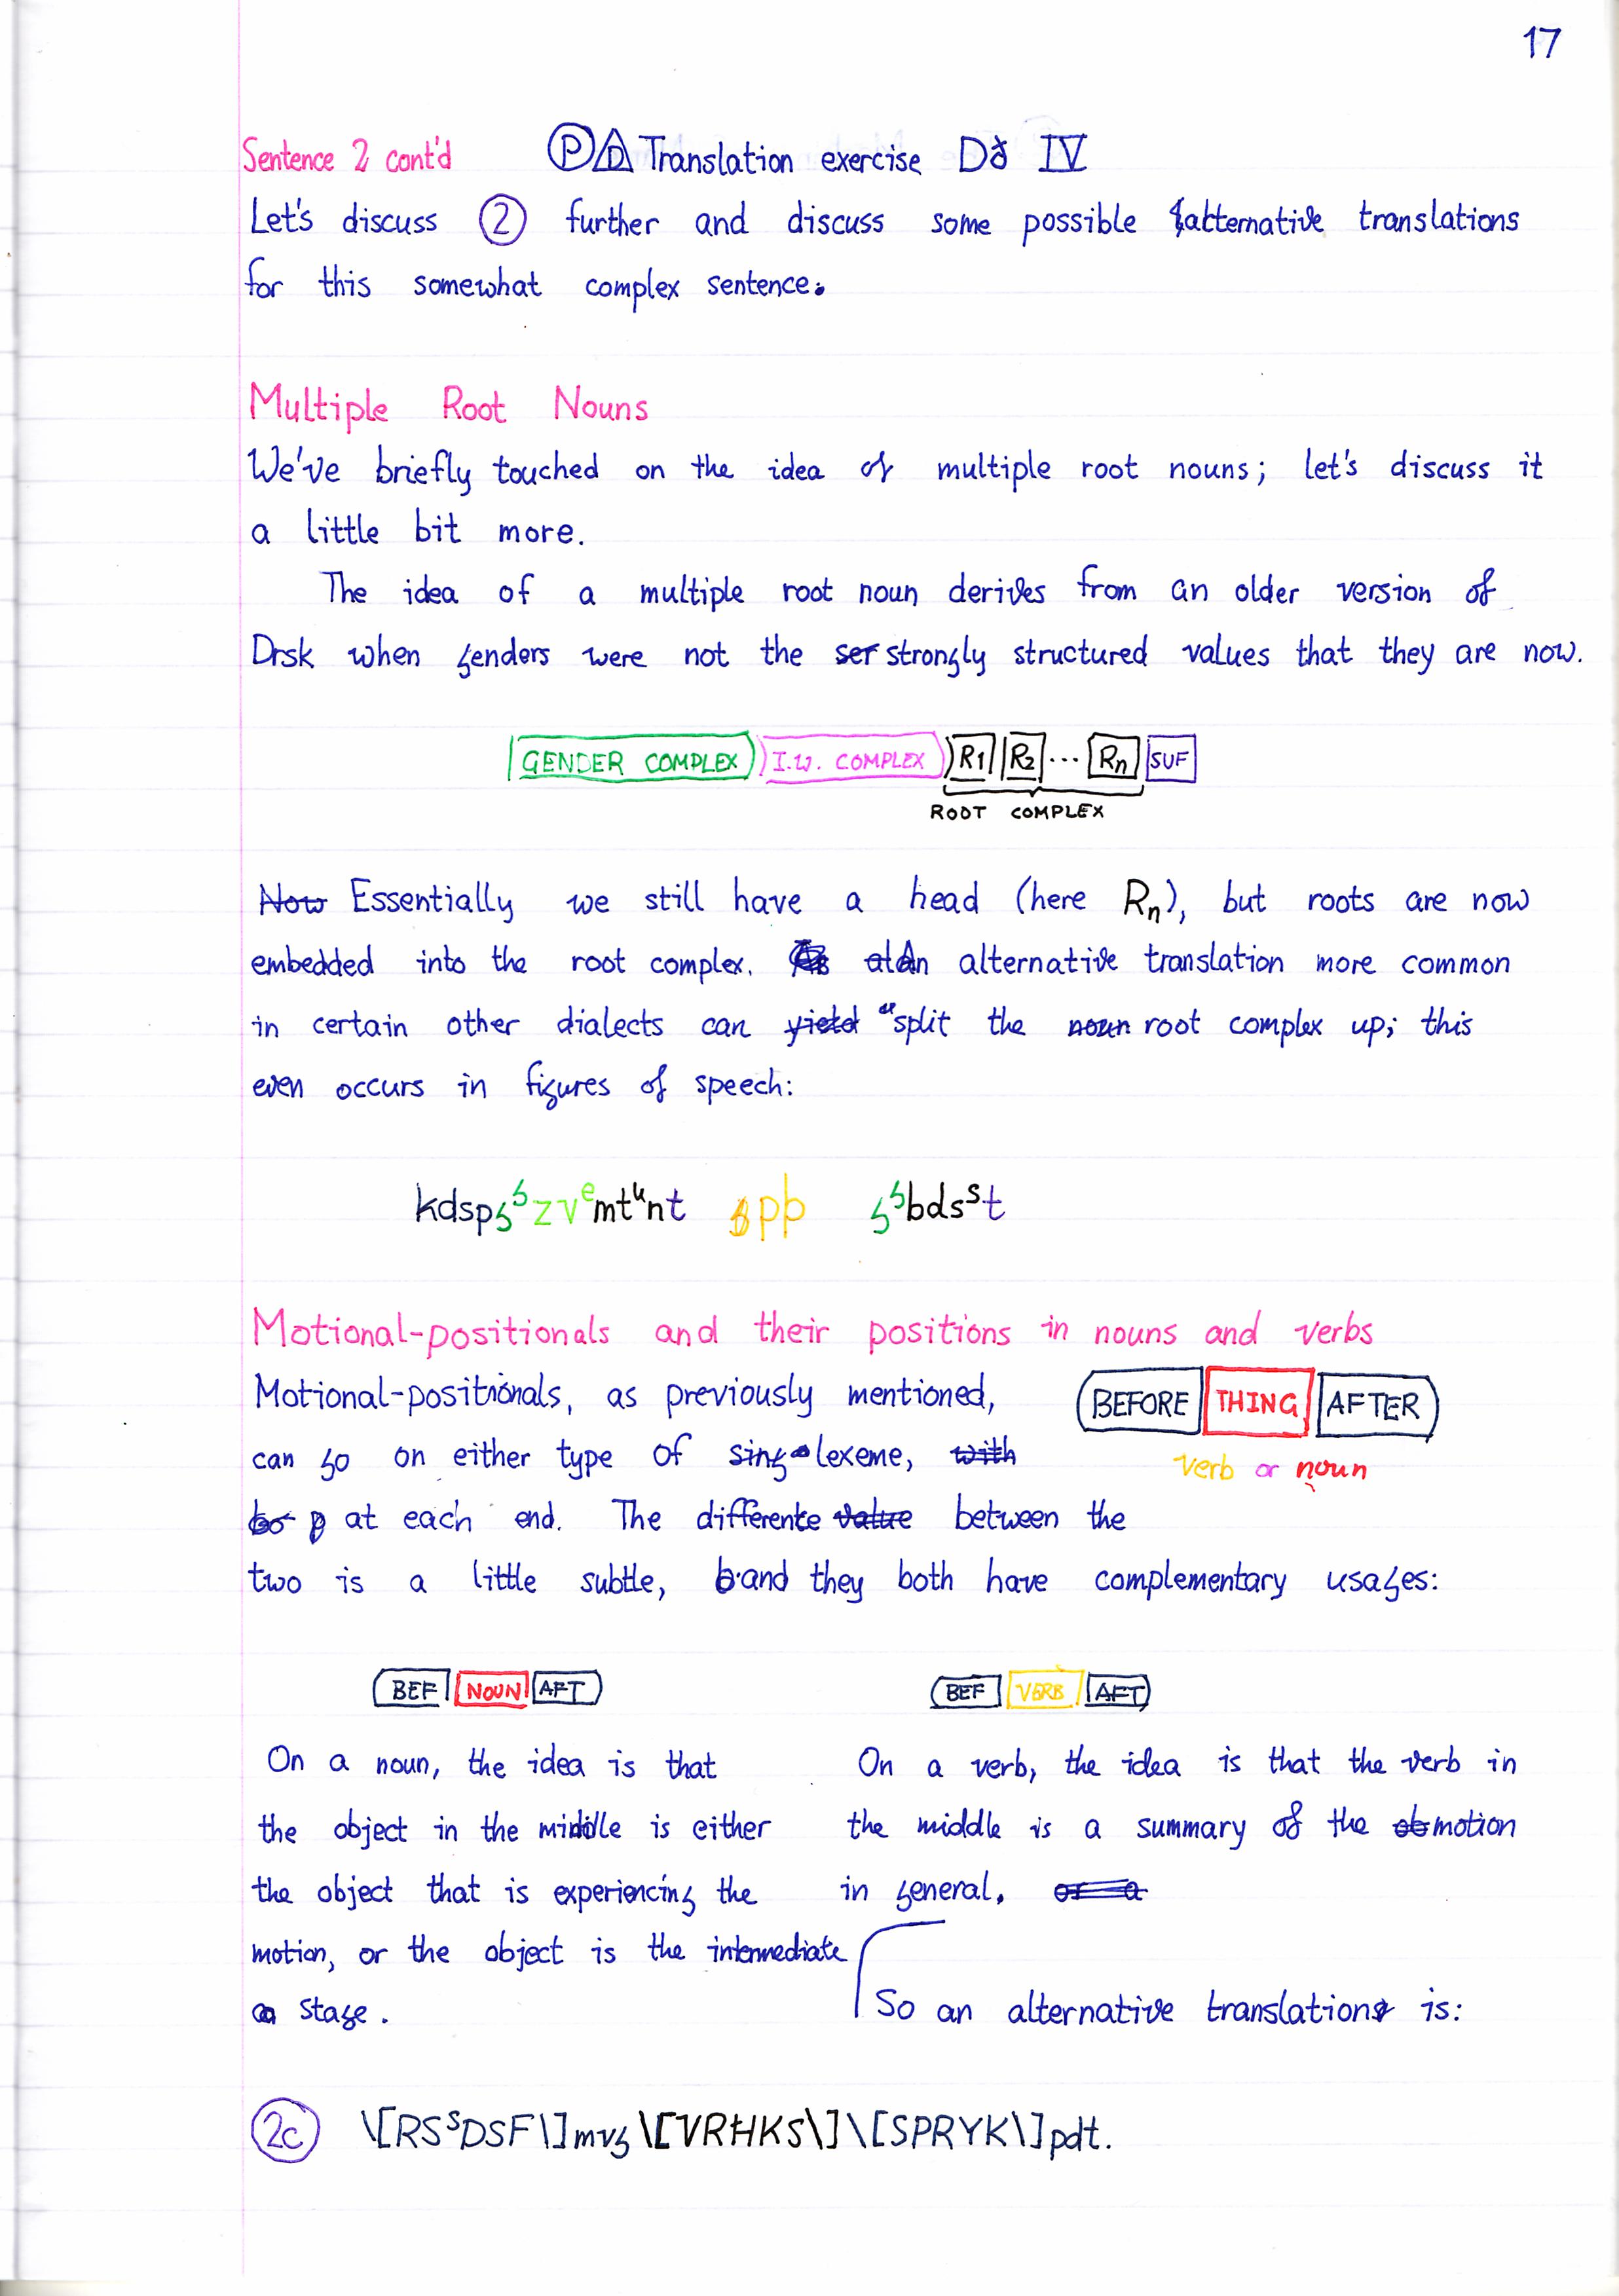 17
Sentence 2 cont'd
Ⓟ Translation exercise Dð IV
Let's discuss ② further and discuss some possible alternative translations
for this somewhat complex sentence.
Multiple Root Nouns
We've briefly touched on the idea of multiple root nouns; let's discuss it
a little bit more.
The idea of a multiple root noun derives from an older version of
Drsk when genders were not the strongly structured values that they are now.
GENDER COMPLEX I.W. COMPLEX R1 R2 ... Rn SUF
ROOT COMPLEX
Now Essentially we still have a head (here Rn), but roots are now
embedded into the root complex. An alternative translation more common
in certain other dialects can yield "split the noun root complex up; this
even occurs in figures of speech:
kdspgᵍzvᵉmtᵘnt gpb gᵍbdsˢt
Motional-positionals and their positions in nouns and verbs
Motional-positionals, as previously mentioned,
BEFORE THING AFTER
can go on either type of lexeme, with
verb or noun
at each end. The difference value between the
two is a little subtle, and they both have complementary usages:
BEF NOUN AFT
BEF VERB AFT
On a noun, the idea is that
the object in the middle is either
the object that is experiencing the
motion, or the object is the intermediate
stage.
On a verb, the idea is that the verb in
the middle is a summary of the motion
in general,
So an alternative translation is:
2c \[RSˢDSF\]mvg\[VRHKS\]\[SPRYK\]pdt.